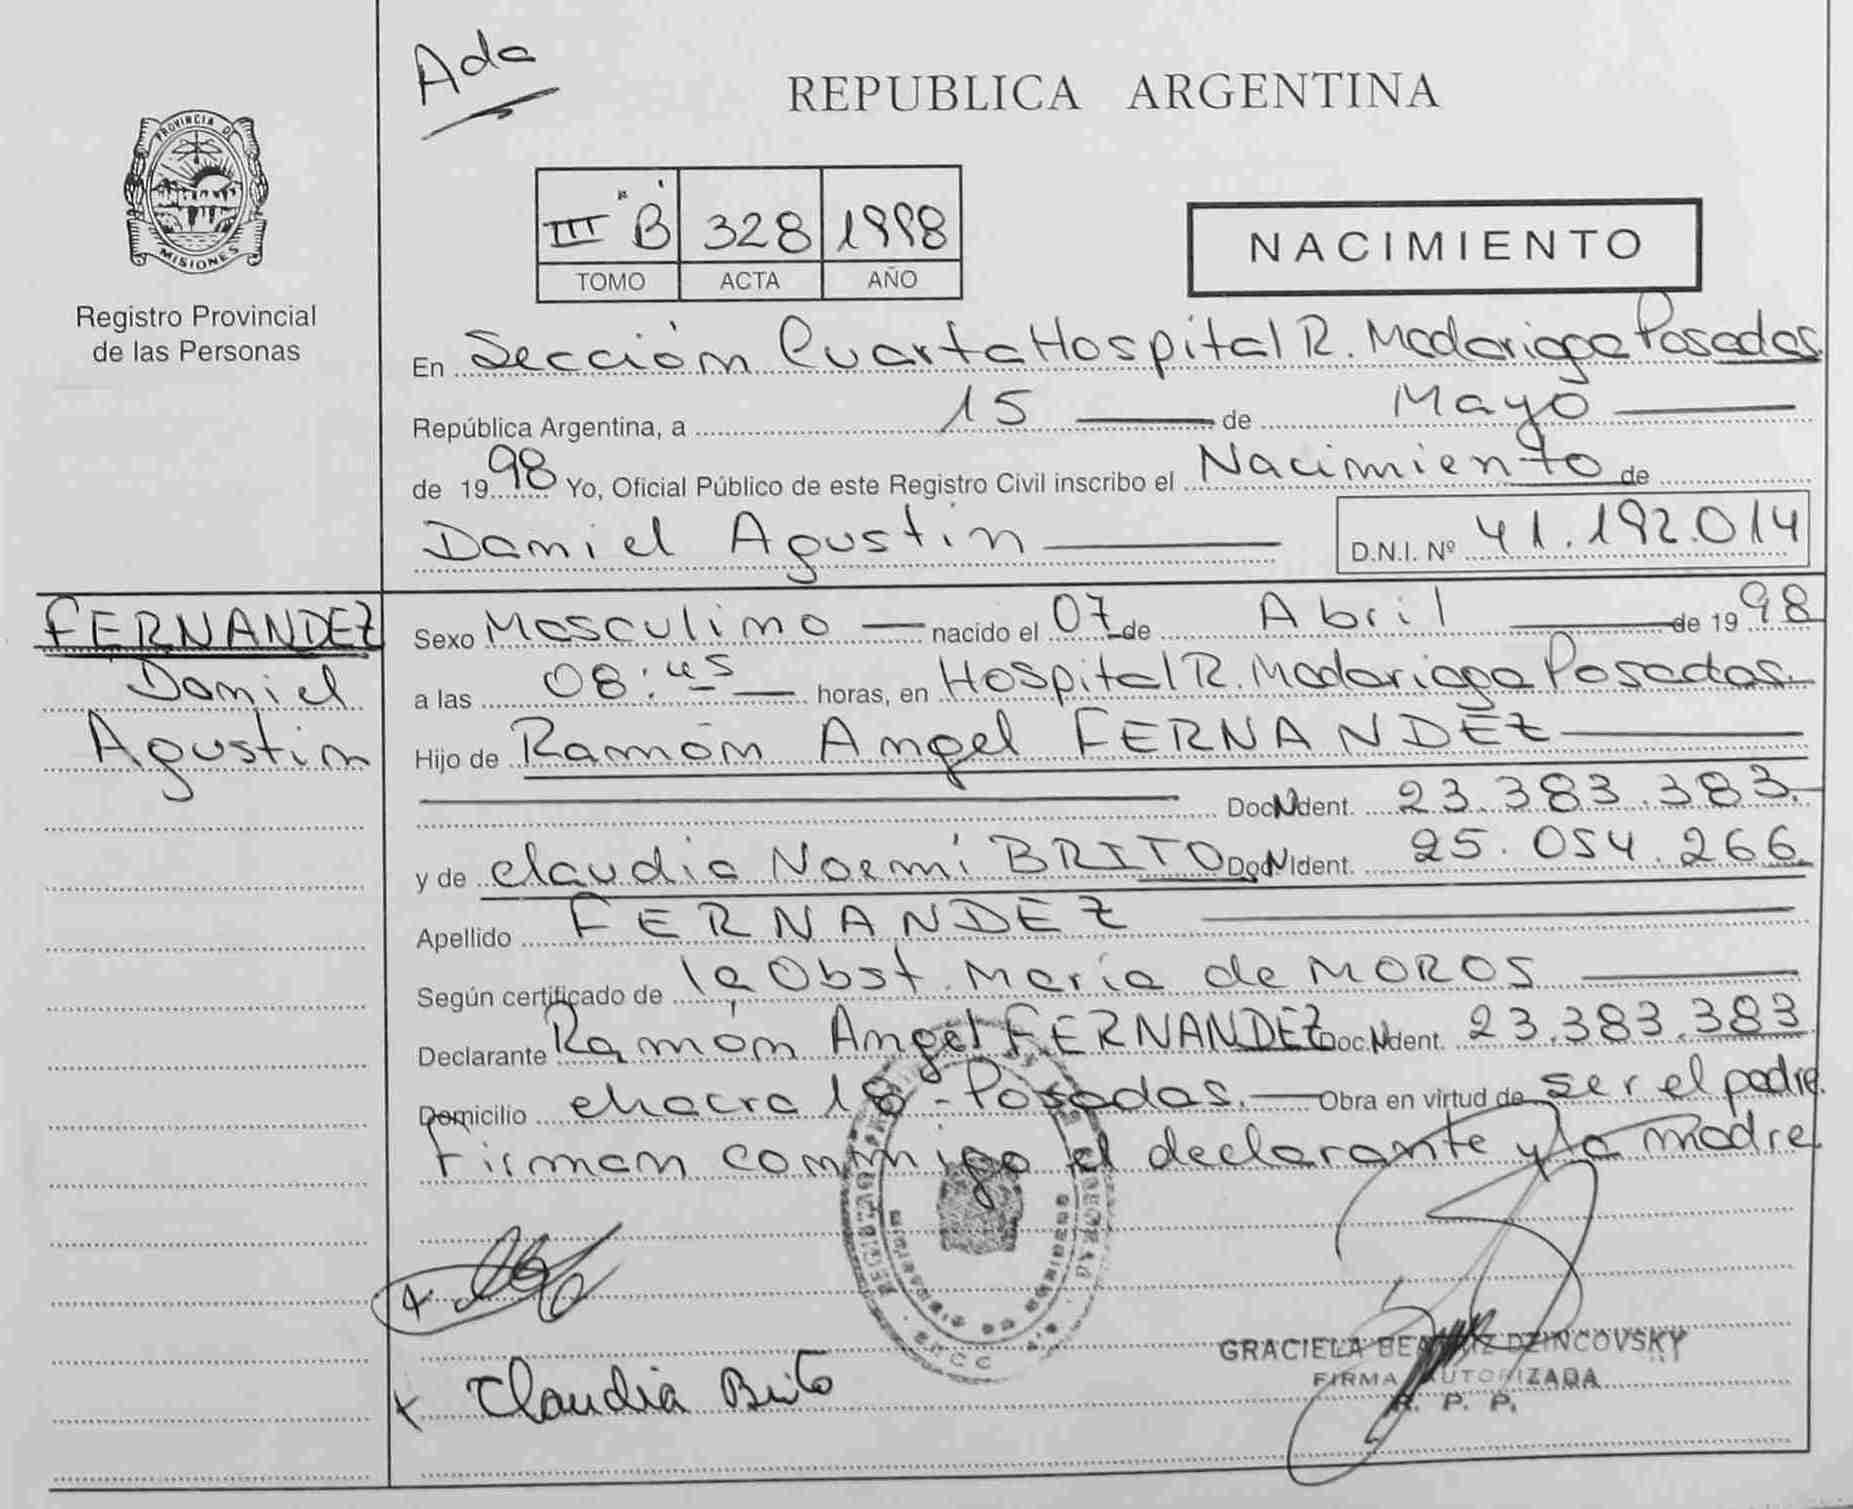 Ada
REPUBLICA ARGENTINA
PROVINCIA DE
MISIONES
Registro Provincial
de las Personas
III "B" 328 1998
TOMO ACTA AÑO
NACIMIENTO
En Sección Cuarta Hospital R. Madariaga Posadas
República Argentina, a 15 de Mayo
de 1998 Yo, Oficial Público de este Registro Civil inscribo el Nacimiento de
Daniel Agustin D.N.I. Nº 41.192.014
FERNANDEZ
Daniel
Agustin
Sexo Masculino nacido el 07 de Abril de 1998
a las 08:45 horas, en Hospital R. Madariaga Posadas.
Hijo de Ramón Angel FERNANDEZ
Doc. Ident. 23.383.383.
y de Claudia Noemí BRITO Doc. Ident. 25.054.266.
Apellido FERNANDEZ
Según certificado de la Obst. María de MOROS
Declarante Ramón Angel FERNANDEZ Doc. Ident. 23.383.383
Domicilio chacra 18 - Posadas. Obra en virtud de ser el padre.
Firman conmigo el declarante y la madre.
Claudia Brito
GRACIELA BEATRIZ DZINCOVSKY
FIRMA AUTORIZADA
R. P. P.